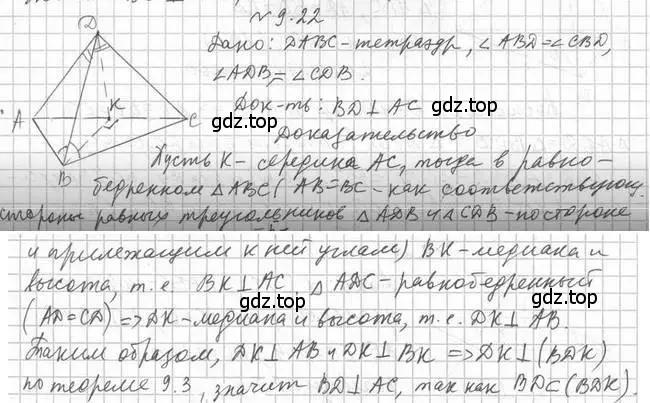 № 9.22
D
Дано: DABC - тетраэдр, ∠ABD = ∠CBD,
∠ADB = ∠CDB.
gdz.top
Док-ть: BD⊥AC
A K C
gdz.top
Доказательство
B
Пусть K - середина AC, тогда в равно-
бедренном △ABC (AB=BC - как соответствующ.
стороны равных треугольников △ADB и △CDB - по стороне
и прилежащим к ней углам) BK - медиана и
gdz.top
высота, т.е. BK⊥AC, △ADC - равнобедренный
gdz.top
(AD=CD) => DK - медиана и высота, т.е. DK⊥AB.
Таким образом, DK⊥AB и DK⊥BK => DK⊥(BDK)
по теореме 9.3, значит BD⊥AC, так как BD⊂(BDK).
gdz.top